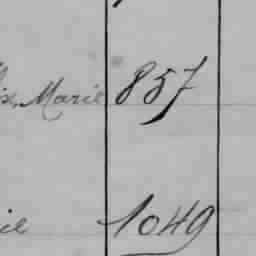 Marie 857
1049